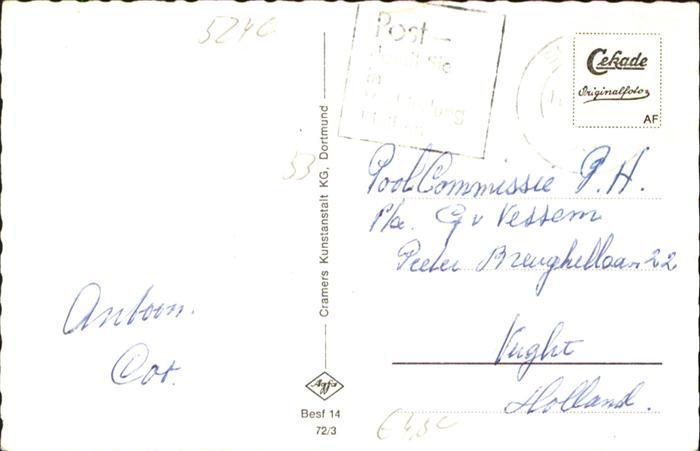 5240
Post-
damit Sie
in
Verbindung
bleiben
Cekade
Originalfoto
AF
53
Cramers Kunstanstalt KG, Dortmund
PoolCommissie P.H.
P/a. G v Vessem
Peeter Breughellaan 22
Vught
Holland.
Antoon.
Cor.
Agfa
Besf 14
72/3